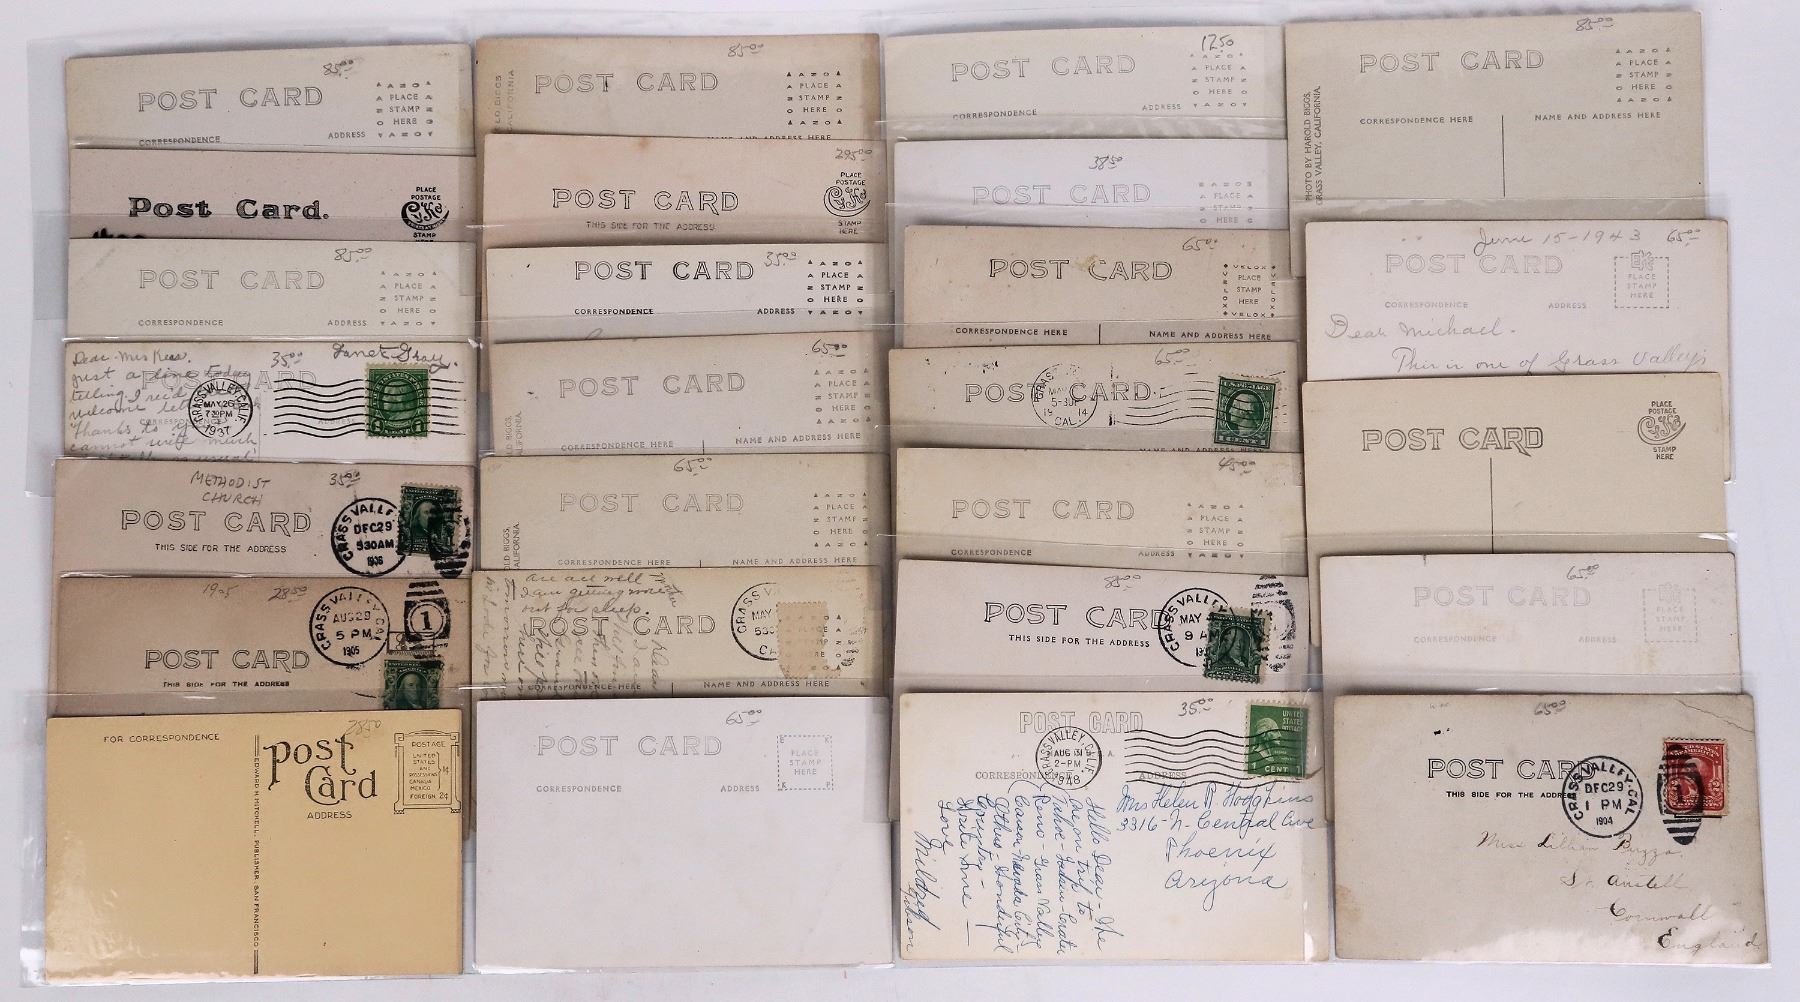 85.00
POST CARD
AZO
PLACE
STAMP
HERE
AZO
CORRESPONDENCE
ADDRESS
Post Card.
PLACE
POSTAGE
CyKo
STAMP
85.00
POST CARD
AZO
PLACE
STAMP
HERE
AZO
CORRESPONDENCE
ADDRESS
Dear Mrs
35.00
Janet Gray.
just a line today
POST CARD
telling I rec'd
welcome
Thanks to
cannot write much
GRASS VALLEY, CALIF.
MAY 26
7:30 PM
1937
METHODIST
CHURCH
35.00
POST CARD
THIS SIDE FOR THE ADDRESS
GRASS VALLEY
DEC 29
530 AM
1905
28.50
POST CARD
THIS SIDE FOR THE ADDRESS
GRASS VALLEY, CAL.
AUG 29
5 PM
1905
1
28.50
FOR CORRESPONDENCE
Post
Card
ADDRESS
POSTAGE
UNITED
STATES
AND
POSSESSIONS
CANADA
MEXICO
1¢
FOREIGN 2¢
EDWARD H. MITCHELL, PUBLISHER, SAN FRANCISCO
85.00
POST CARD
OLD BIGGS
CALIFORNIA
AZO
PLACE
STAMP
HERE
AZO
NAME AND ADDRESS HERE
295.00
POST CARD
THIS SIDE FOR THE ADDRESS
PLACE
POSTAGE
CyKo
STAMP
HERE
35.00
POST CARD
AZO
PLACE
STAMP
HERE
AZO
CORRESPONDENCE
ADDRESS
65.00
POST CARD
OLD BIGGS
CALIFORNIA
AZO
PLACE
STAMP
HERE
AZO
CORRESPONDENCE HERE
NAME AND ADDRESS HERE
65.00
POST CARD
OLD BIGGS,
CALIFORNIA.
AZO
PLACE
STAMP
HERE
AZO
CORRESPONDENCE HERE
NAME AND ADDRESS HERE
are all well
I am getting
out for sleep.
POST CARD
GRASS V
MAY
530
CA
CORRESPONDENCE HERE
NAME AND ADDRESS HERE
65.00
POST CARD
PLACE
STAMP
HERE
CORRESPONDENCE
ADDRESS
12.50
POST CARD
AZO
PLACE
STAMP
HERE
AZO
CORRESPONDENCE
ADDRESS
38.50
POST CARD
AZO
PLACE
STAMP
HERE
65.00
POST CARD
VELOX
PLACE
STAMP
HERE
VELOX
CORRESPONDENCE HERE
NAME AND ADDRESS HERE
65.00
POST CARD
GRASS
MAY
5-30P
19 14
CAL.
U.S. POSTAGE
1 CENT 1
45.00
POST CARD
AZO
PLACE
STAMP
HERE
AZO
CORRESPONDENCE
ADDRESS
85.00
POST CARD
THIS SIDE FOR THE ADDRESS
GRASS VALLEY
MAY
9 AM
35.00
POST CARD
CORRESPONDENCE
ADDRESS
GRASS VALLEY, CALIF.
AUG 31
2-PM
1948
UNITED
STATES
POSTAGE
1 CENT 1
Mrs Helen R Hodgkins
3316-N-Central Ave
Phoenix
Arizona
Hello Dear - We
are on trip to
Tahoe-
Reno - Grass Valley
Carson-Nevada City-
Others - Wonderful
Country -
Write Some -
Love
Mildred
Gibson
85.00
POST CARD
PHOTO BY HAROLD BIGGS,
GRASS VALLEY, CALIFORNIA.
AZO
PLACE
STAMP
HERE
AZO
CORRESPONDENCE HERE
NAME AND ADDRESS HERE
June 15-1943
65.00
POST CARD
EKC
PLACE
STAMP
HERE
CORRESPONDENCE
ADDRESS
Dear Michael.
This is one of Grass Valleys
POST CARD
PLACE
POSTAGE
CyKo
STAMP
HERE
65.00
POST CARD
PLACE
STAMP
HERE
CORRESPONDENCE
ADDRESS
65.00
POST CARD
THIS SIDE FOR THE ADDRESS
GRASS VALLEY, CAL.
DEC 29
1 PM
1904
Miss Lillian
St. Austell
Cornwall
England